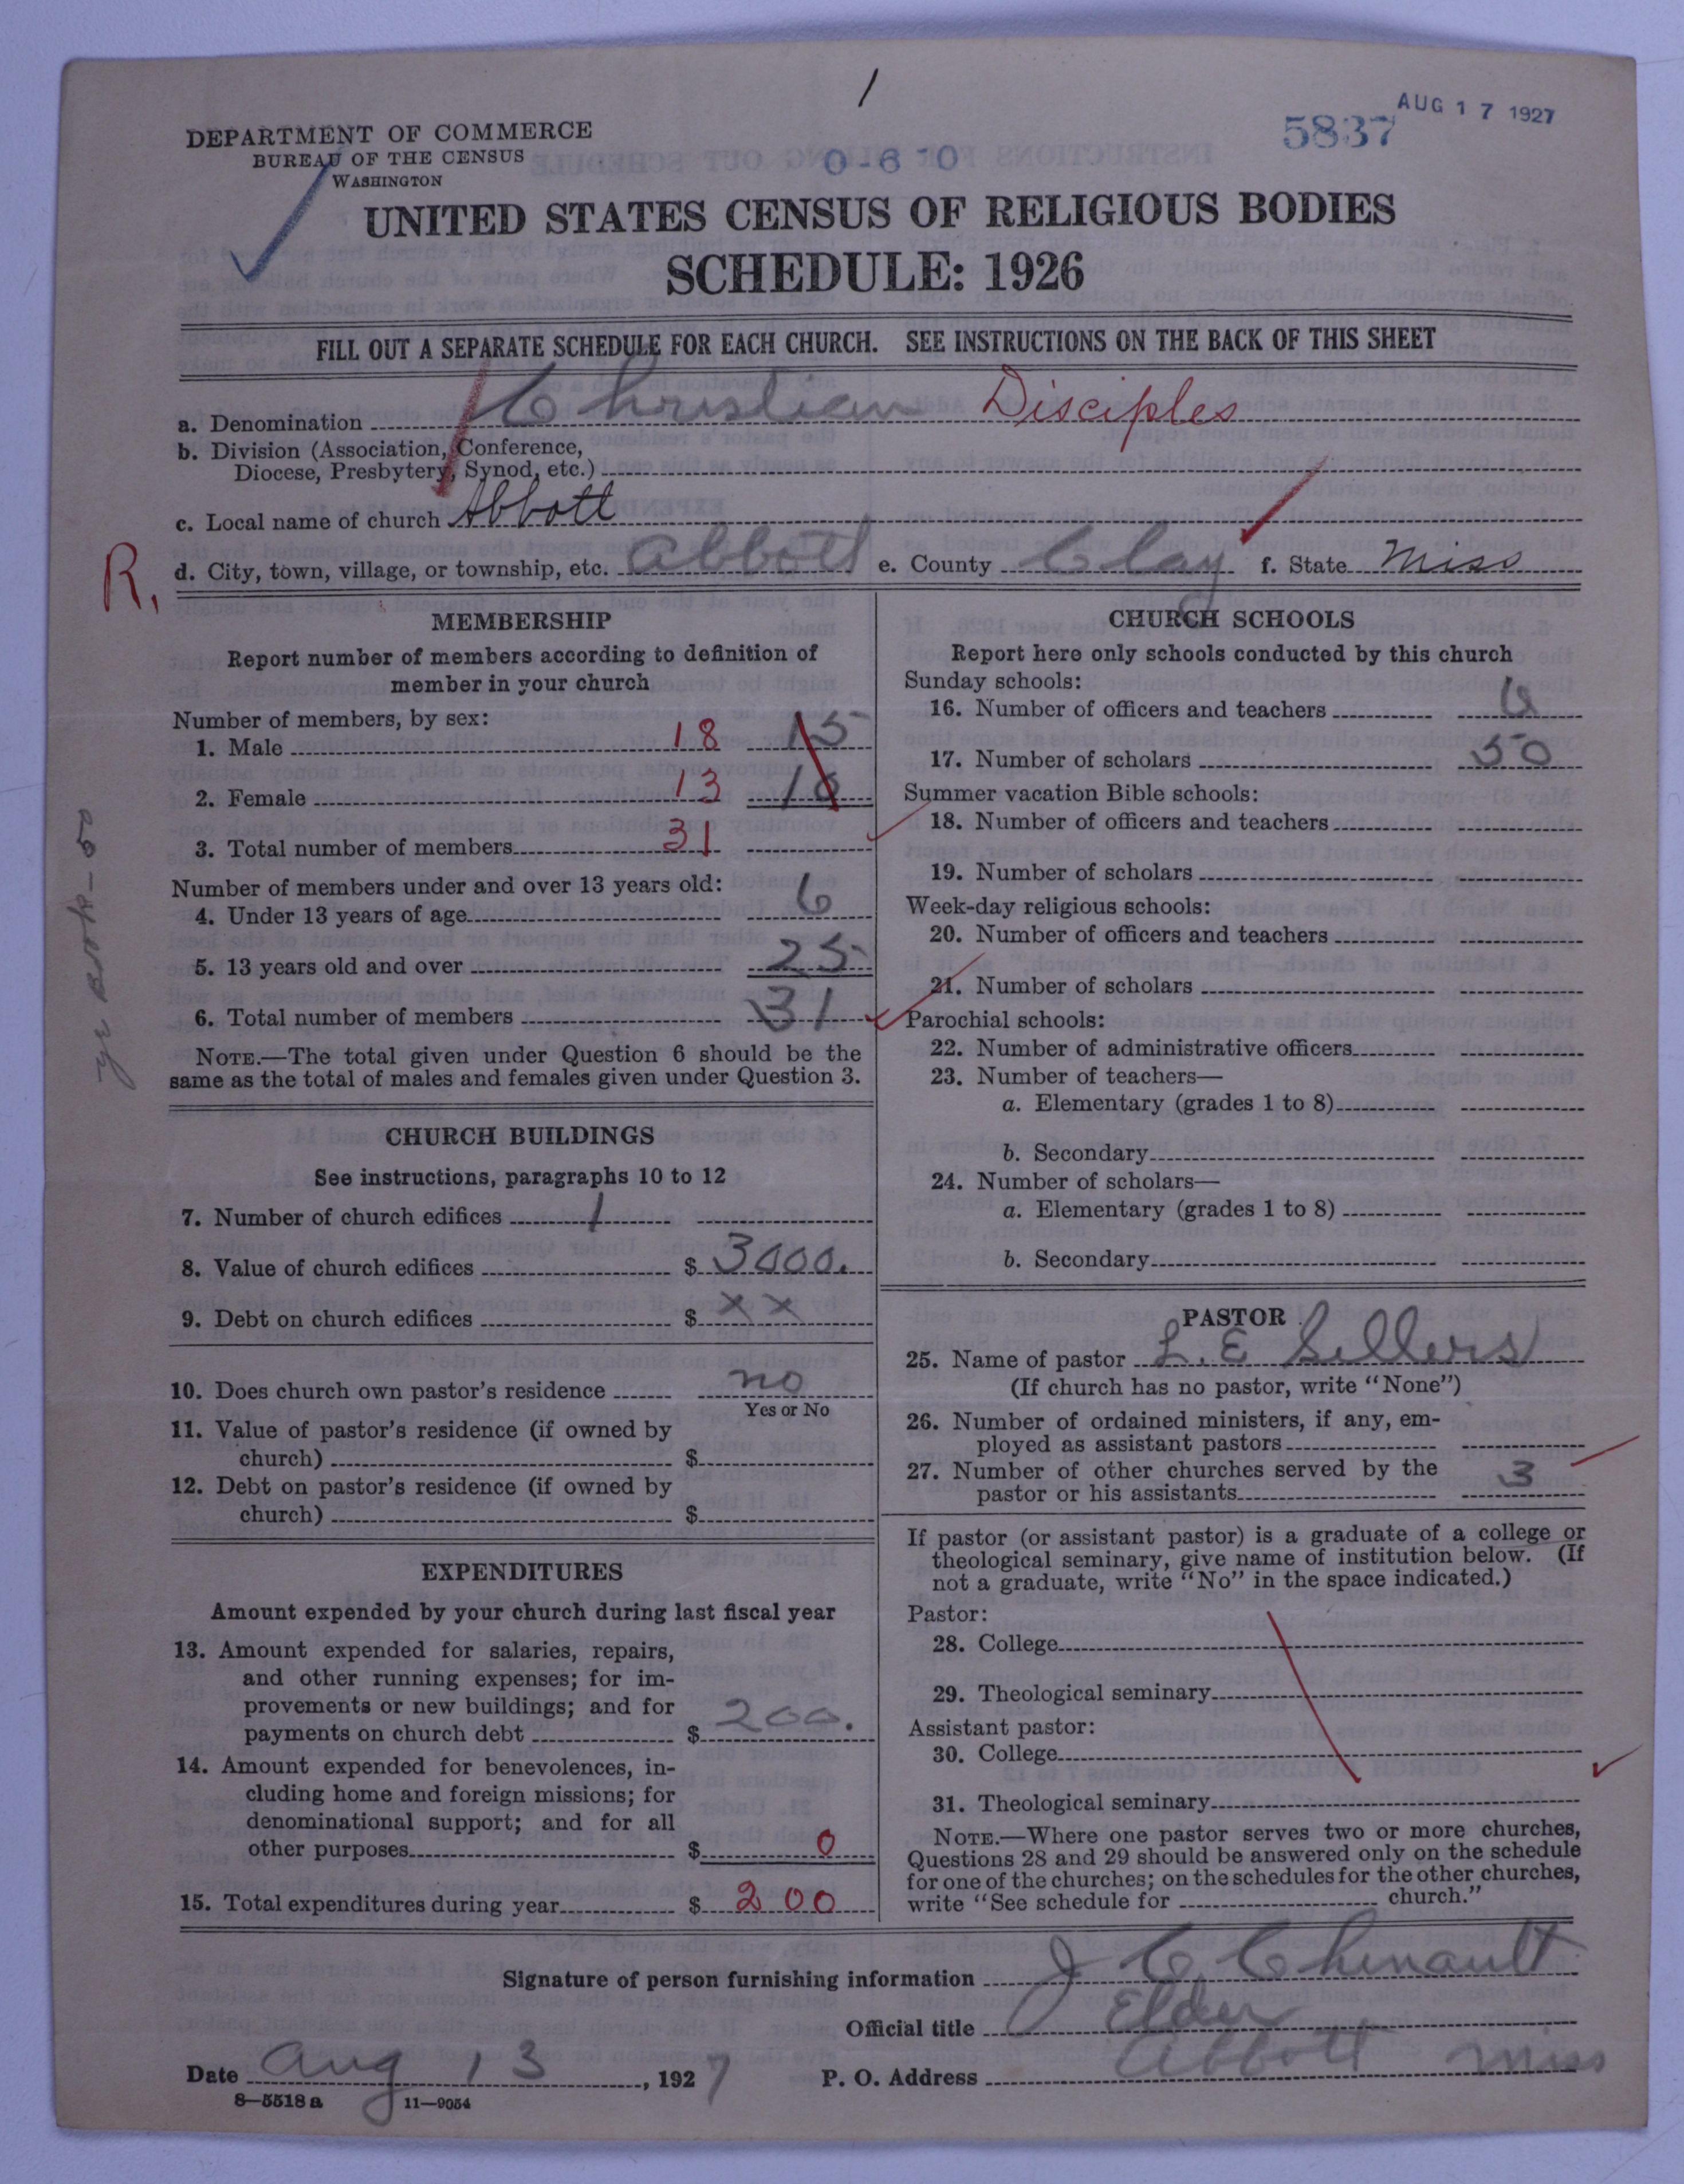 1
AUG 17 1927
5837
DEPARTMENT OF COMMERCE
BUREAU OF THE CENSUS
WASHINGTON
0-6 0
UNITED STATES CENSUS OF RELIGIOUS BODIES
SCHEDULE: 1926
FILL OUT A SEPARATE SCHEDULE FOR EACH CHURCH. SEE INSTRUCTIONS ON THE BACK OF THIS SHEET
a. Denomination Christian Disciples
b. Division (Association, Conference,
Diocese, Presbytery, Synod, etc.)
c. Local name of church Abbott
R.
d. City, town, village, or township, etc. Abbott e. County Clay f. State Miss
MEMBERSHIP
Report number of members according to definition of
member in your church
Number of members, by sex:
1. Male 18 15
2. Female 13 10
3. Total number of members 31
Number of members under and over 13 years old:
4. Under 13 years of age 6
5. 13 years old and over 25
6. Total number of members 31
NOTE.—The total given under Question 6 should be the
same as the total of males and females given under Question 3.
CHURCH BUILDINGS
See instructions, paragraphs 10 to 12
7. Number of church edifices 1
8. Value of church edifices $ 3000.
9. Debt on church edifices $ x x
10. Does church own pastor's residence no
Yes or No
11. Value of pastor's residence (if owned by
church) $
12. Debt on pastor's residence (if owned by
church) $
EXPENDITURES
Amount expended by your church during last fiscal year
13. Amount expended for salaries, repairs,
and other running expenses; for im-
provements or new buildings; and for
payments on church debt $ 200.
14. Amount expended for benevolences, in-
cluding home and foreign missions; for
denominational support; and for all
other purposes $ 0
15. Total expenditures during year $ 200
CHURCH SCHOOLS
Report here only schools conducted by this church
Sunday schools:
16. Number of officers and teachers 6
17. Number of scholars 50
Summer vacation Bible schools:
18. Number of officers and teachers
19. Number of scholars
Week-day religious schools:
20. Number of officers and teachers
21. Number of scholars
Parochial schools:
22. Number of administrative officers
23. Number of teachers—
a. Elementary (grades 1 to 8)
b. Secondary
24. Number of scholars—
a. Elementary (grades 1 to 8)
b. Secondary
PASTOR
25. Name of pastor L. E Sellers
(If church has no pastor, write "None")
26. Number of ordained ministers, if any, em-
ployed as assistant pastors
27. Number of other churches served by the
pastor or his assistants 3
If pastor (or assistant pastor) is a graduate of a college or
theological seminary, give name of institution below. (If
not a graduate, write "No" in the space indicated.)
Pastor:
28. College
29. Theological seminary
Assistant pastor:
30. College
31. Theological seminary
NOTE.—Where one pastor serves two or more churches,
Questions 28 and 29 should be answered only on the schedule
for one of the churches; on the schedules for the other churches,
write "See schedule for church."
Signature of person furnishing information J C Chenault
Official title Elder
Date Aug 13, 1927 P. O. Address Abbott Miss
8—5518 a 11—9054